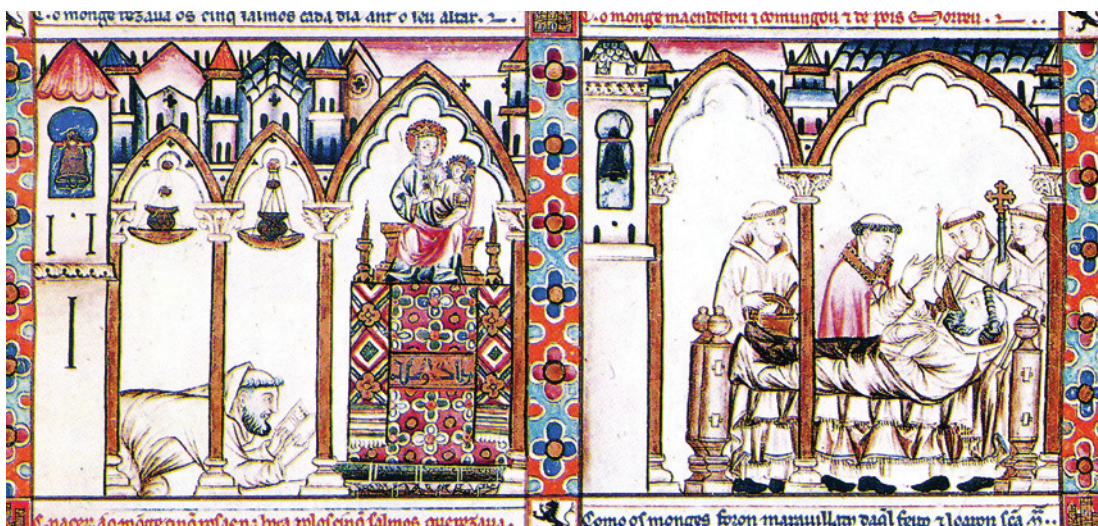 C. o monge rezava os cinq salmos cada dia ant o seu altar.
C. o monge maenfestou ⁊ comungou ⁊ de pois morreu.
cinq salmos que rezava.
Como os monges foron daql feito ⁊ loaron